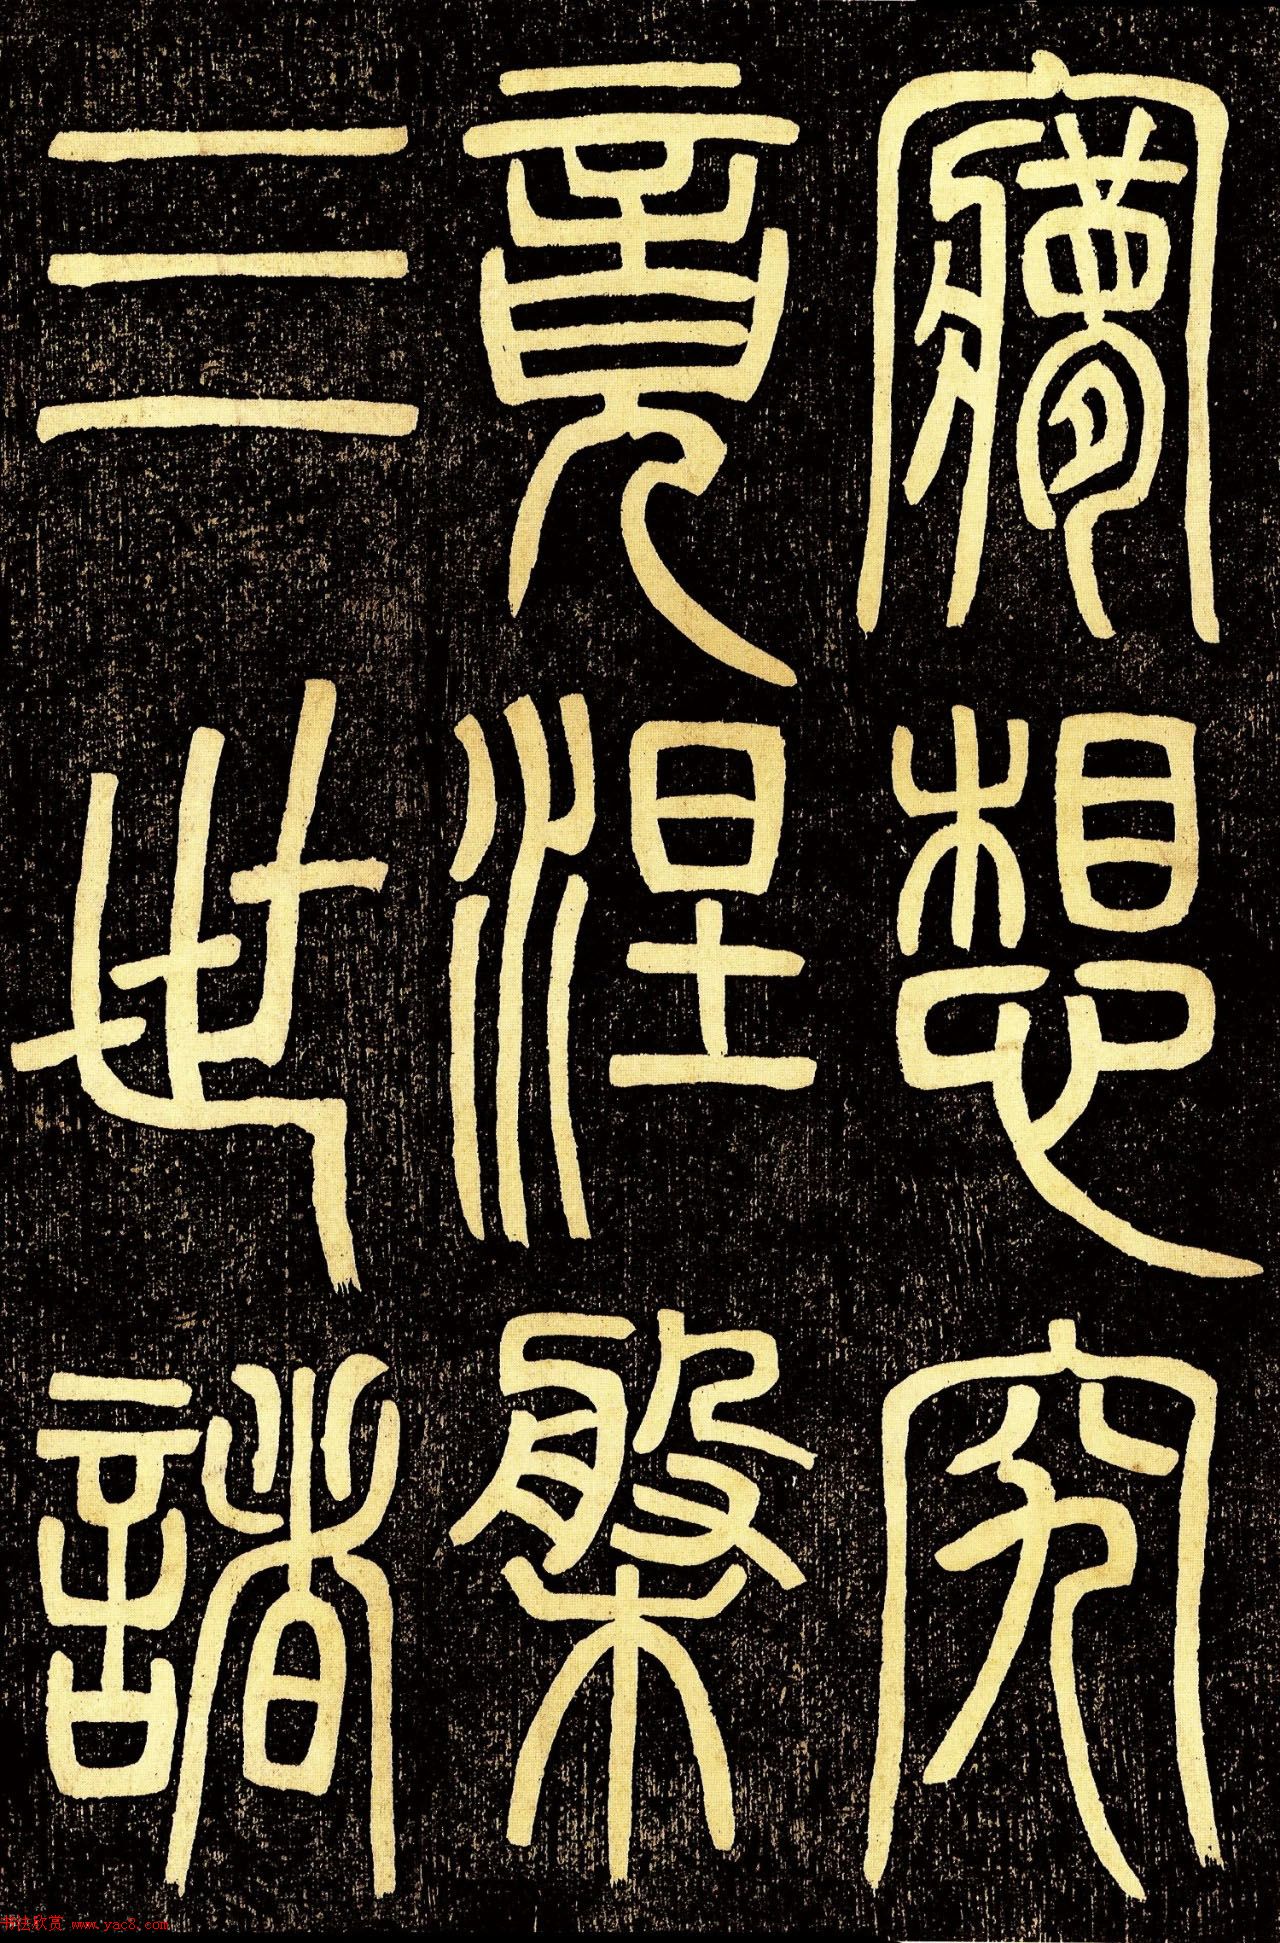 㝱想究
竟涅槃
三世諸
书法欣赏 www.yac8.com